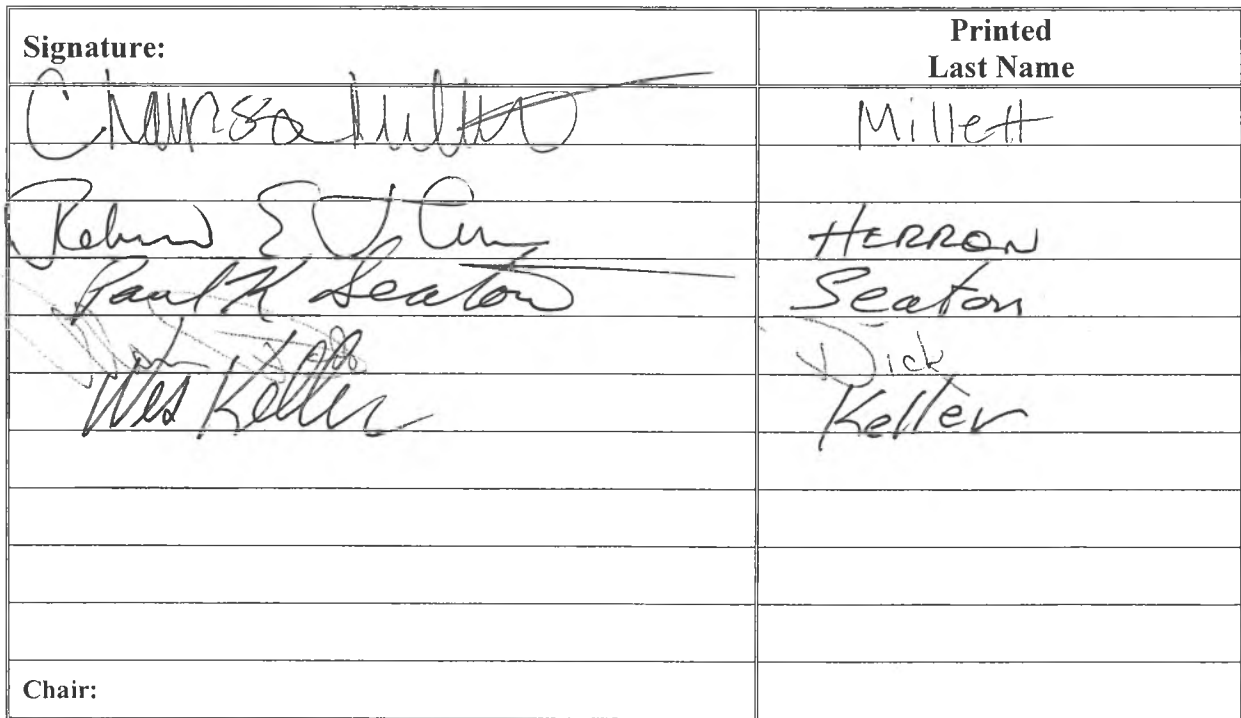 Signature: Printed
Last Name
Charisse Millett Millett
E HERRON
Paul K Seaton Seaton
Dick
Wes Keller Keller
Chair: